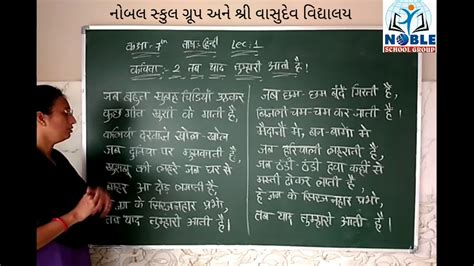 નોબલ સ્કુલ ગ્રુપ અને શ્રી વાસુદેવ વિદ્યાલય
NOBLE
SCHOOL GROUP
कक्षा-7th हिन्दी Lec:1
कविता:-2 तब याद तुम्हारी आती है!
जब बहुत सुबह चिड़िया उठकर
कुछ गीत खुशी के गाती हैं,
कलियाँ दरवाजे खोल-खोल
जब दुनिया पर मुसकाती है,
खुशबू की लहरें जब घर से
बाहर आ दौड़ लगाती हैं,
हे जग के सिरजनहार प्रभो,
तब याद तुम्हारी आती है।
जब छम-छम बूँदें गिरती है,
बिजली चम-चम कर जाती है।
मैदानों में, वन-बागों में
जब हरियाली लहराती है,
जब ठंडी-ठंडी हवा कहीं से
मस्ती ढोकर लाती है,
हे जग के सिरजनहार प्रभो,
तब याद तुम्हारी आती है।